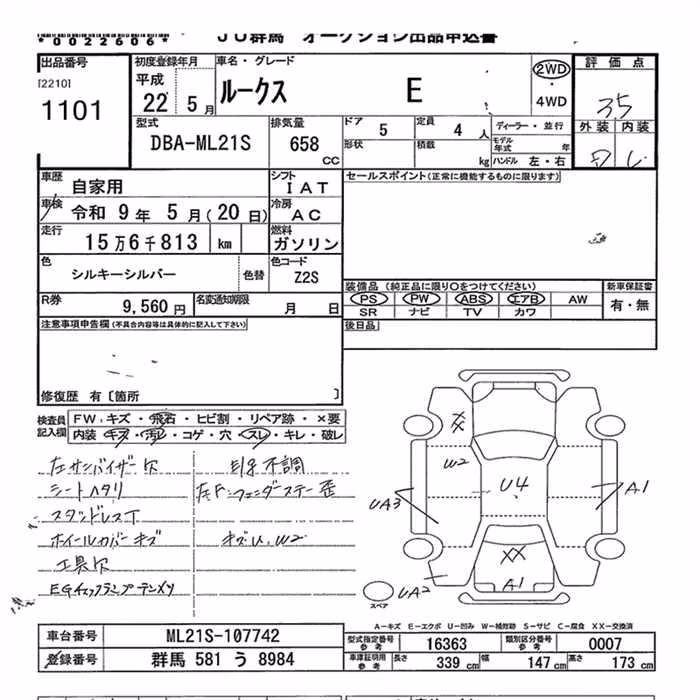 *0022606* JU群馬 オークション出品申込書
出品番号 初度登録年月 車名・グレード 評価点
[2210] 平成 2WD
1101 22 5月 ルークス E 4WD 35
型式 排気量 ドア 5 定員 4人 ディーラー・並行 外装 内装
DBA-ML21S 658 CC 形状 積載 kg モデル年式 年 ハンドル 左・右 D
車歴 自家用 シフト IAT セールスポイント(正常に機能するものに限ります)
車検 令和 9年 5月(20日) 冷房 AC
走行 15万6千813 km 燃料 ガソリン
色 シルキーシルバー 色替 色コード Z2S
装備品(純正品に限り○をつけてください) 新車保証書
PS PW ABS エアB AW 有・無
SR ナビ TV カワ
R券 9,560円 名変通知期限 月 日
後日品
注意事項申告欄(不具合内容等は具体的に記入して下さい)
修復歴 有〔箇所 〕
検査員記入欄 FW:キズ・飛石・ヒビ割・リペア跡・×要
内装・キズ・汚レ・コゲ・穴・スレ・キレ・破レ
左サンバイザー欠 E/g不調
シートヘタリ 左F.フェンダーステー歪
スタッドレスT
ホイールカバーキズ キズU,W2
工具欠
EGチェックランプテンメツ
XX
W2
U4
UA3
A1
XX
A1
UA2
スペア
A-キズ E-エクボ U-凹み W-補修跡 S-サビ C-腐食 XX-交換済
車台番号 ML21S-107742 型式指定番号 参考 16363 類別区分番号 参考 0007
登録番号 群馬 581 う 8984 車庫証明用 参考 長さ 339 cm 幅 147 cm 高さ 173 cm